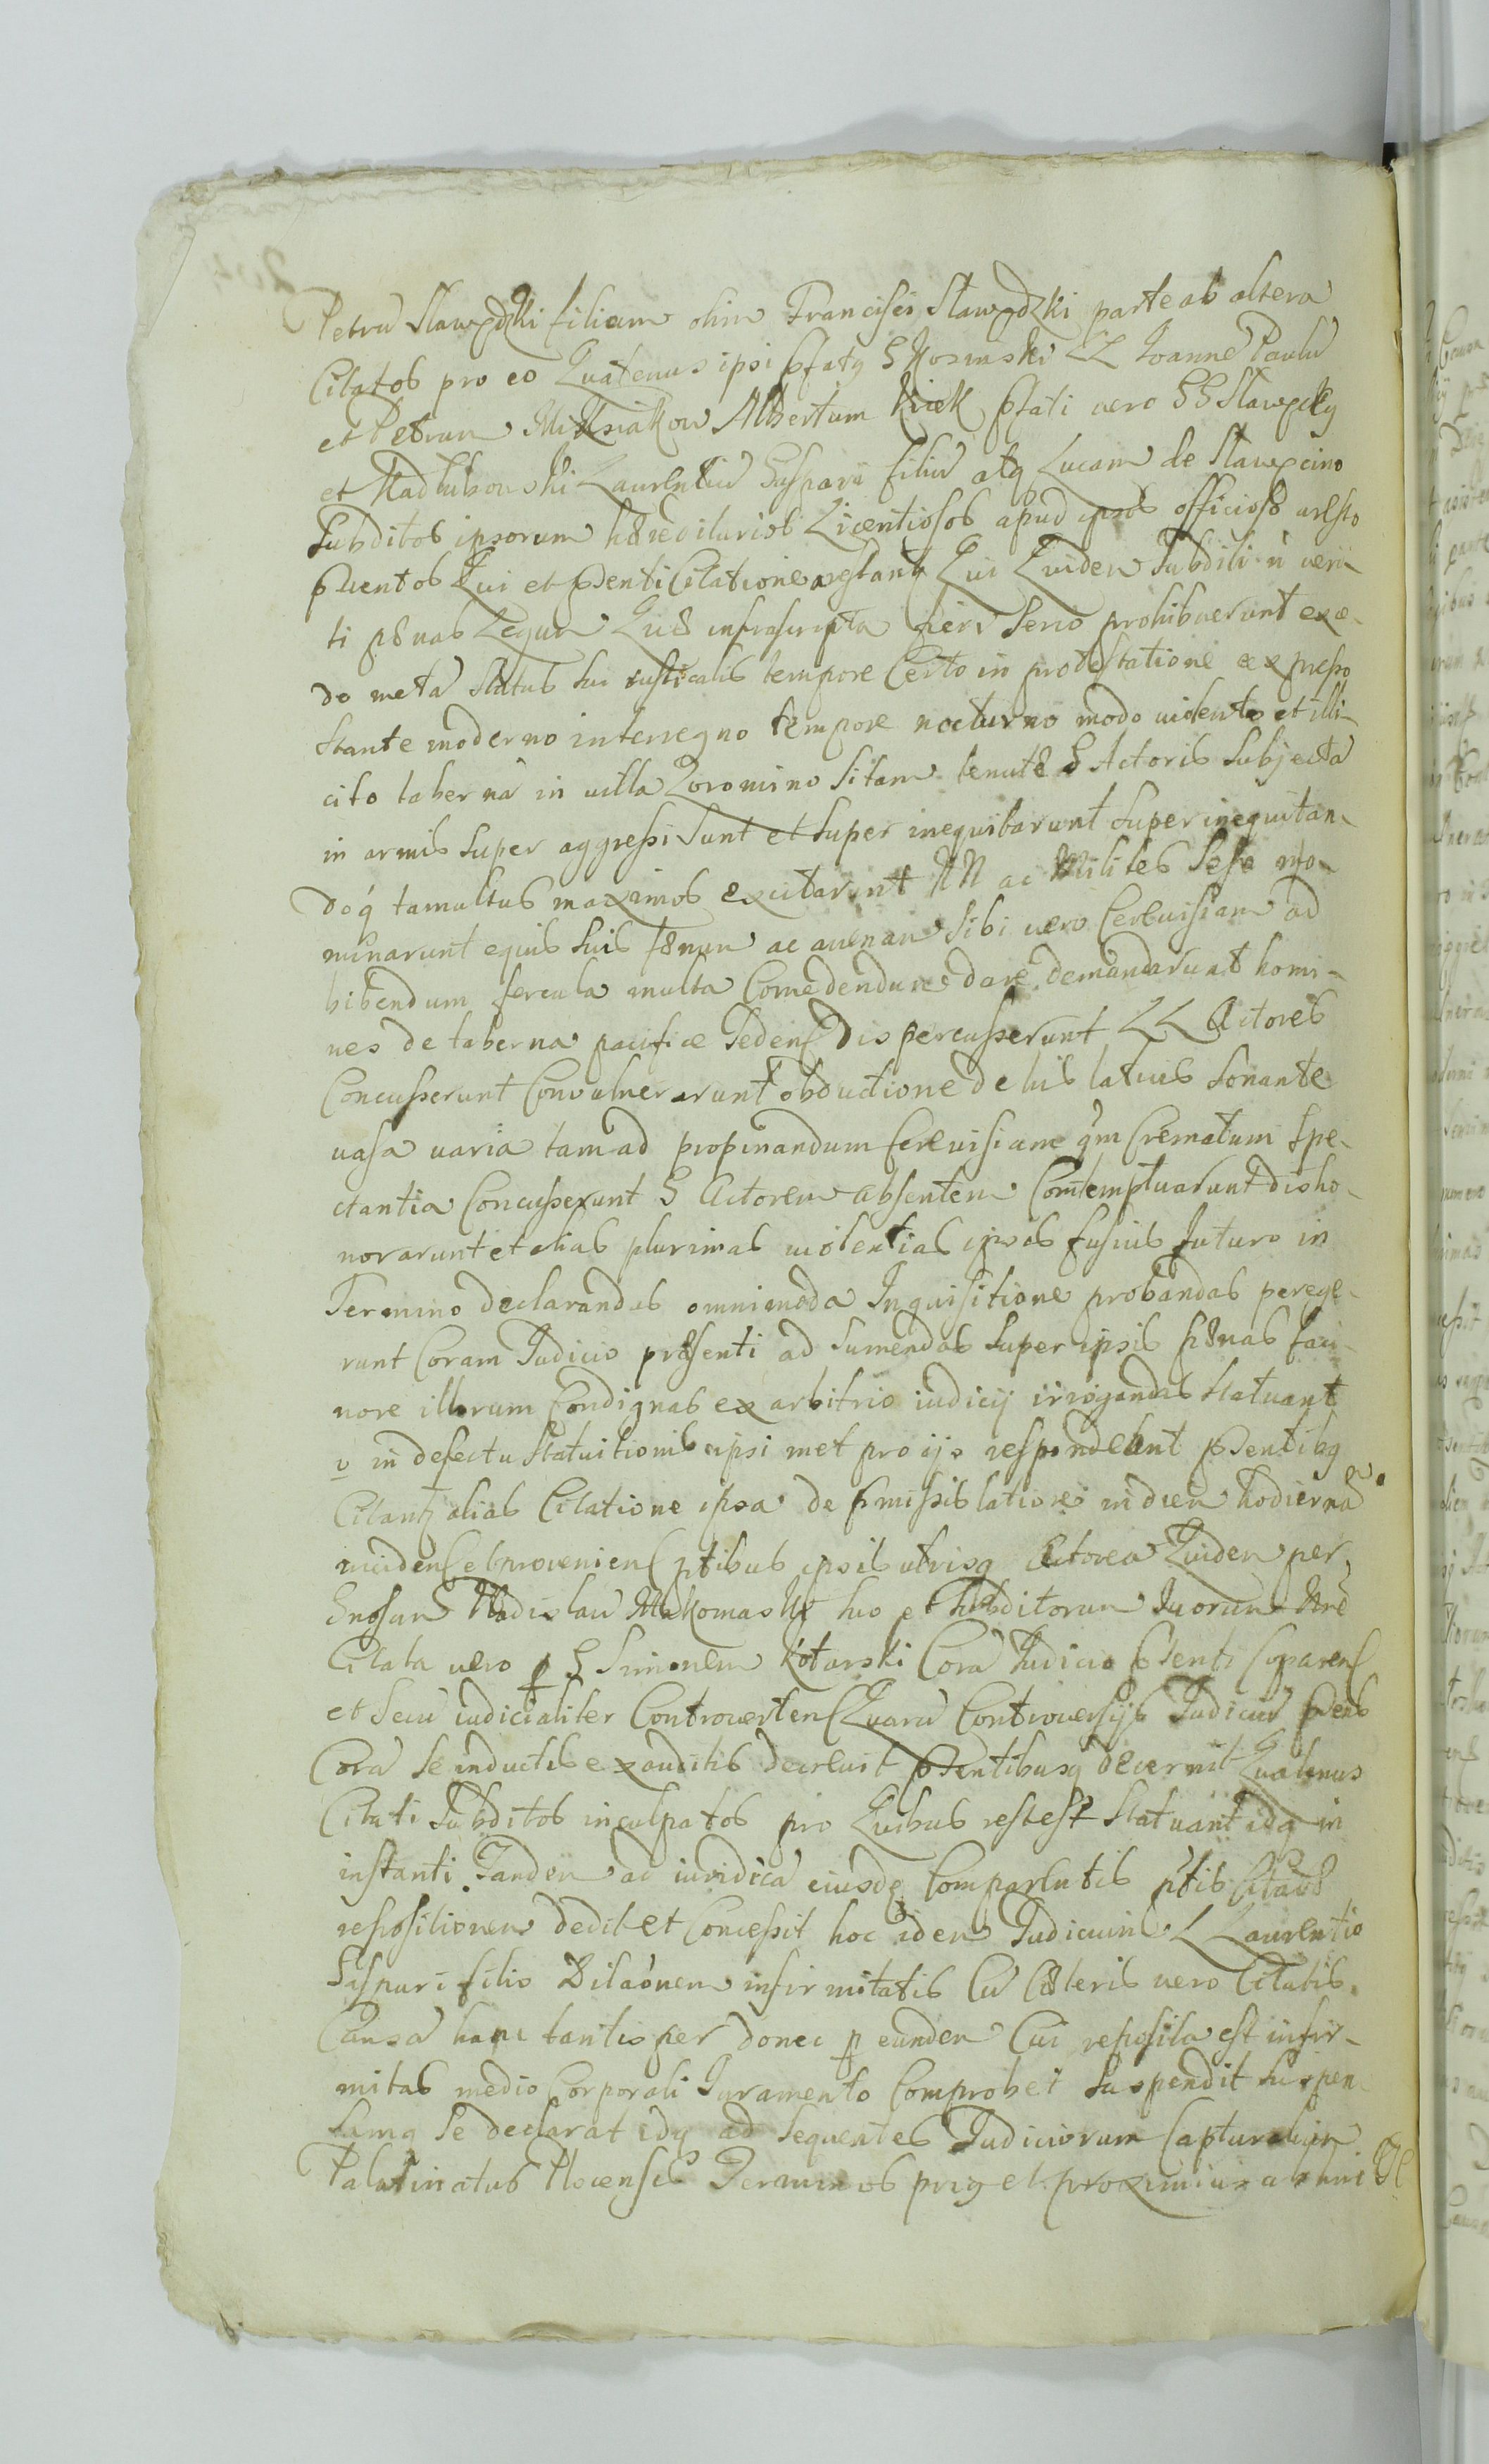 Petrū Slawędzki filium olim Francisci Slawędzki parte ab altera
Citatos pro eo Quatenus ipsi pfatg G Kosinski LL Joanne Paulū
et Petrum Albertum Kicek pfati vero GG Slawęcky
et Nadłubowski Laurentiū Gaspari filiū atq Lucam de Slawęcino
Subditos ipsorum hæreditarios Licentiosos apud ipsos officioso aresto
Qui et pdenti Citatione Qui Quidem Subditi ñ veri
ti pænas Legum Quæ infrascripta fieri serio prohibuerunt exce-
do meta Status sui rusticalis tempore Certo in protestatione expresso
Stante moderno interregno tempore nocturno modo violento et illi-
cito tabernā in villa Zoromino sitam tenutæ G Actoris Subjecta
in armis super aggressi sunt et super inequitarunt super inequitan-
doq́ tumultus maximos excitarunt NN ac Milites sese no-
minarunt equis suis fænum ac avenam sibi vero Cerevisiam ad
bibendum fercula multa Comedendum dare demandarunt homi-
nes de taberna pacifice Sedenſ dispercusserunt LL Actores
Concusserunt Convulnerarunt obductione de his latius sonante
vasa varia tam ad propinandum Cerevisiam qm Crematum Spe-
ctantia Concusserunt G Actorem absentem Contemptuarunt disho-
norarunt et alias plurimas violentias ipsos fusius futuro in
Termino declarandas omnimoda Inquisitione probandas perege-
runt Coram Judicio præsenti ad sumendas super ipsis pænas faci-
nore illorum Condignas ex arbitrio iudicij irrogandas Statuant
v in defectu Statuitionis ipsi met pro ijs respondeant pdentibg
Citantʒ alias Citatione ipsa de pmissis latiore in diem hodiernā
inciden et provenien ptibus ipsis utrisq Actorea Quidem per
Gnosum Wladislau suo et Subditorum Suorum Nrē
Citata vero p G Simonem Kotarski Corā Judicio pdenti Cōparenſ
et secū iudicialiter Controverten Quarū Controversijs Judiciū pdens
Corā se inductis exauditis decrevit pdentibusq decernit Quatenus
Citati Subditos inculpatos pro Quibus rest est Statuant idq in
instanti Tandem ad iuridicā eiusdē Comparentis ptis Citatæ
repositionem dedit et Concessit hoc idem Judicium L Laurentio
Gaspari filio Dilaōnem infirmitatis Cū Cæteris vero Citatis
Causā hanc tantisper donec p eundem Cui reposita est infir-
mitas medio Corporali Juramento Comprobet Suspendit Suspen-
samq se declarat idq ad sequentes Judiciorum Capturalium
Palatinatus Plocensis Terminos prig et proximius ab hinc